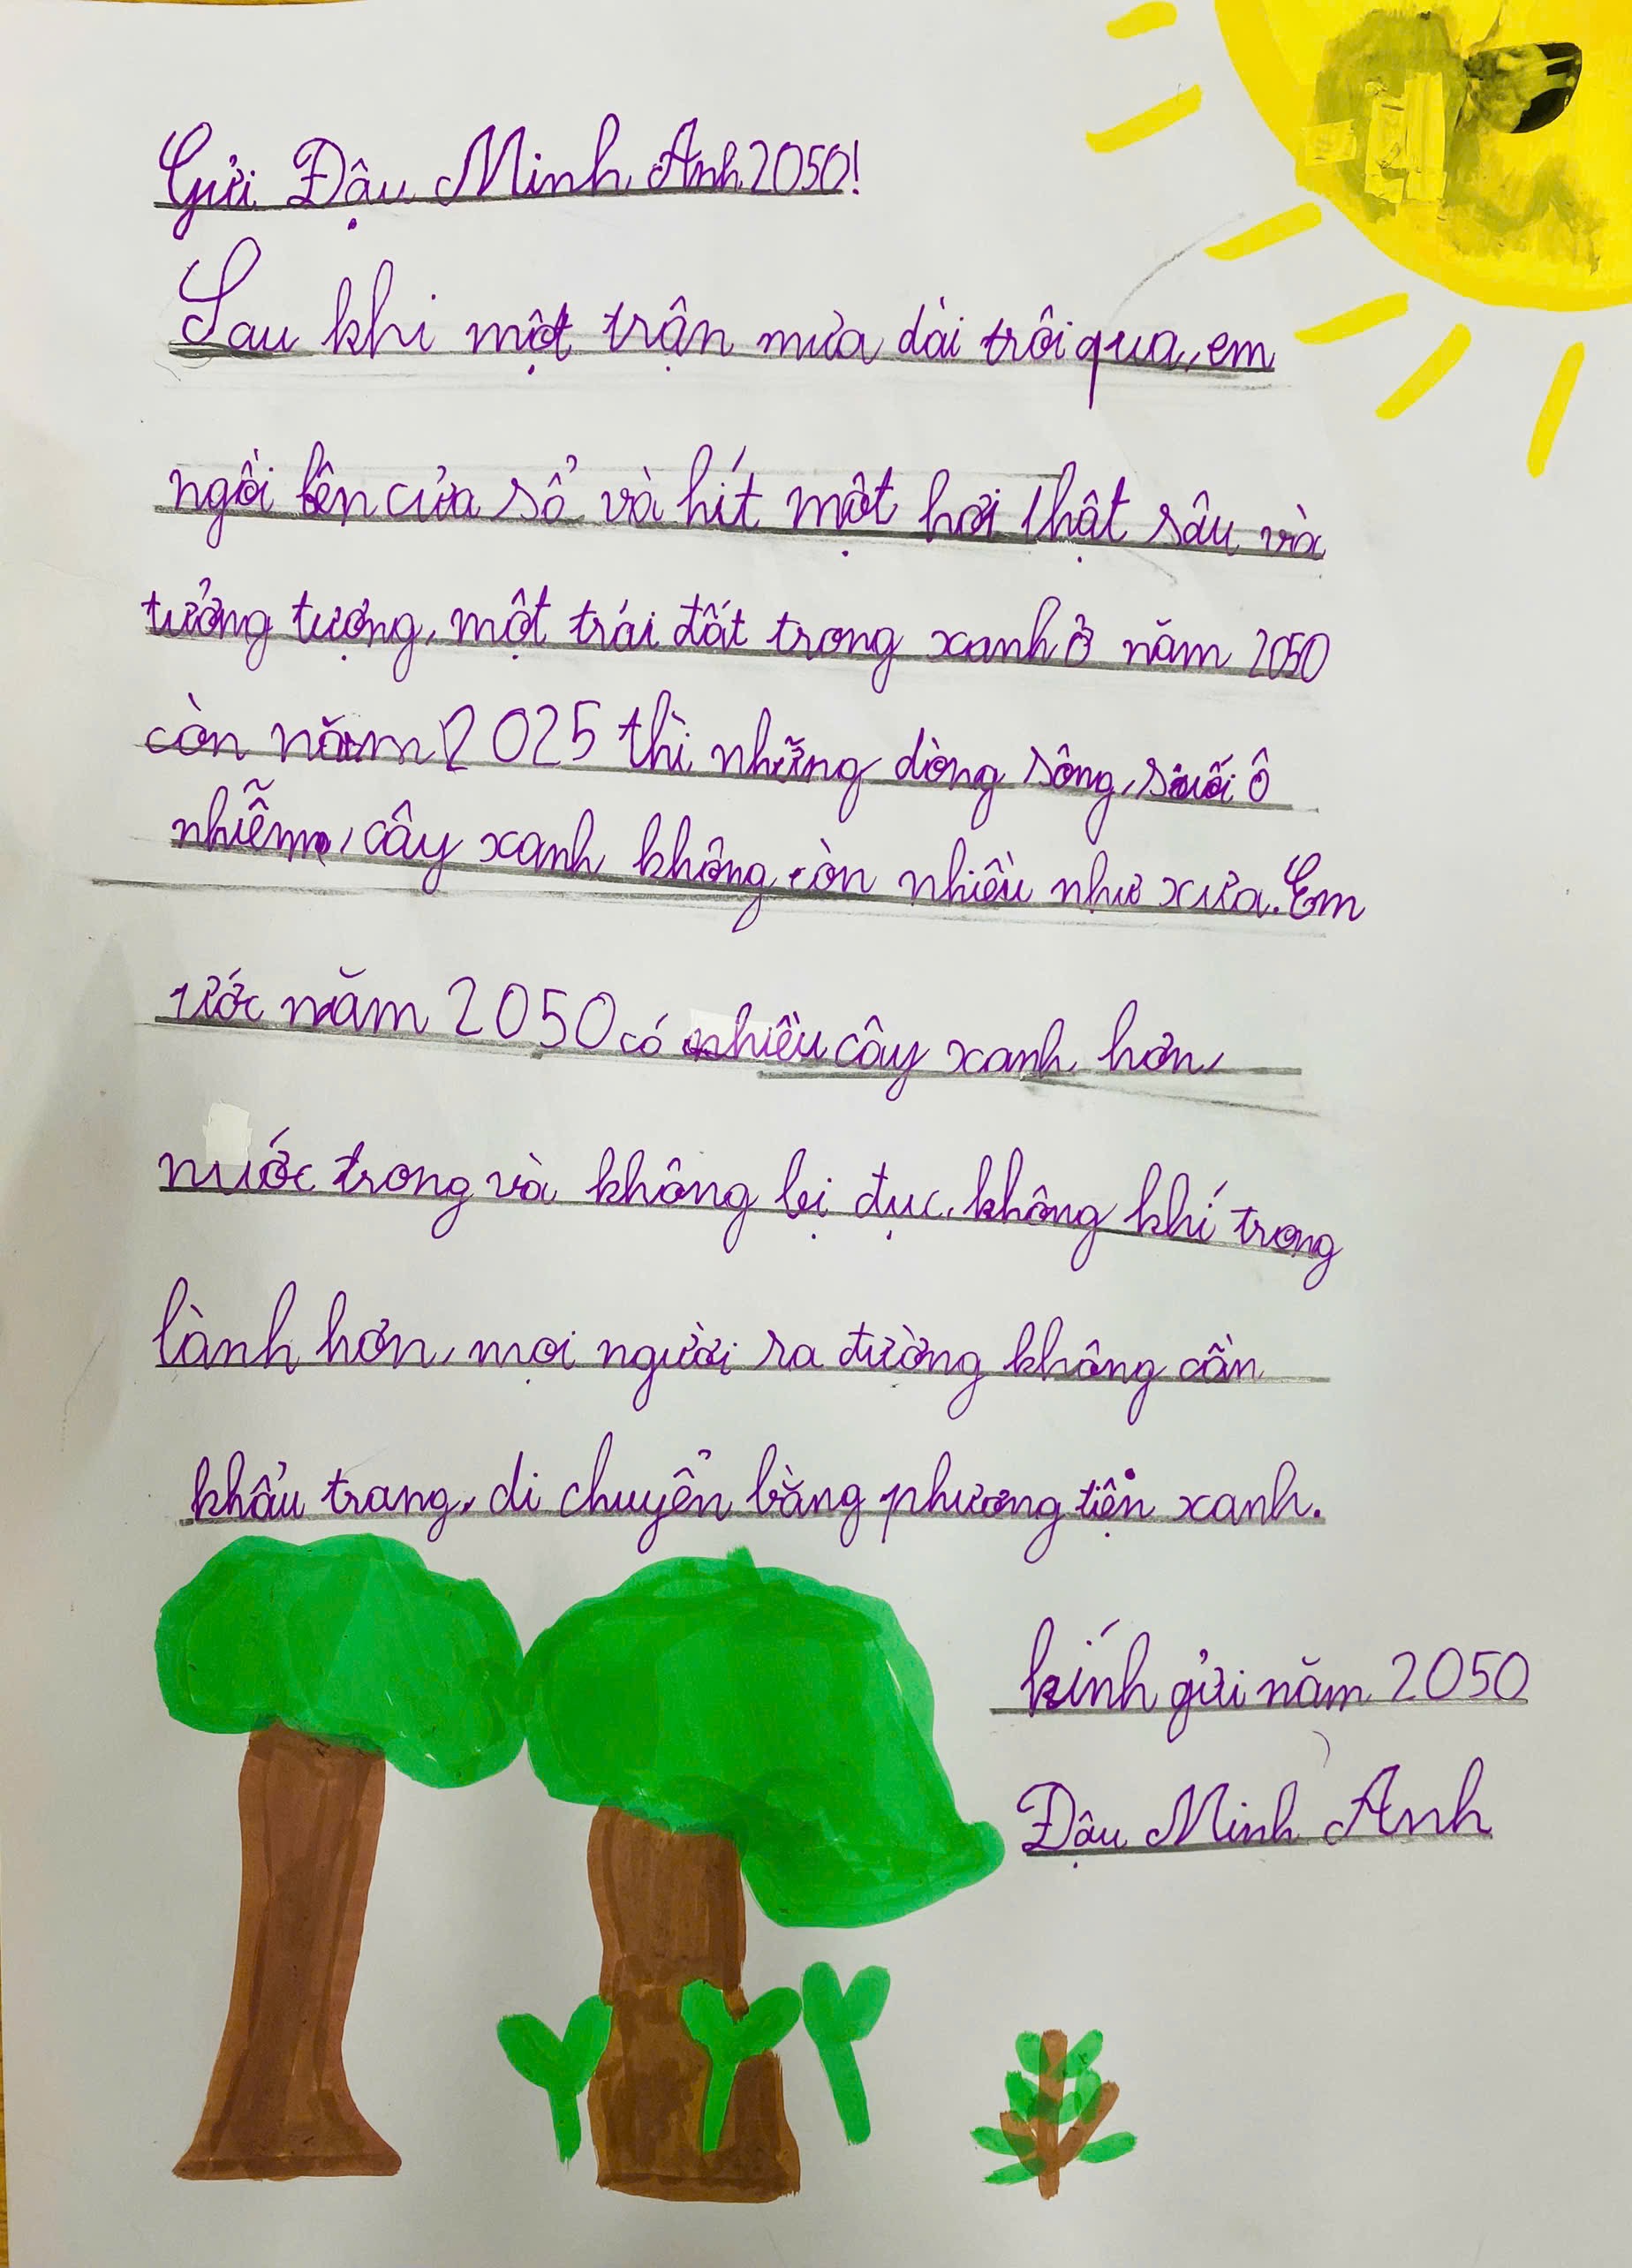 Gửi Đậu Minh Anh 2050!
Sau khi một trận mưa dài trôi qua, em
ngồi bên cửa sổ và hít một hơi thật sâu và
tưởng tượng, một trái đất trong xanh ở năm 2050
còn năm 2025 thì những dòng sông, suối ô
nhiễm, cây xanh không còn nhiều như xưa. Em
ước năm 2050 có nhiều cây xanh hơn,
nước trong và không bị đục, không khí trong
lành hơn, mọi người ra đường không cần
khẩu trang, di chuyển bằng phương tiện xanh.
kính gửi năm 2050
Đậu Minh Anh